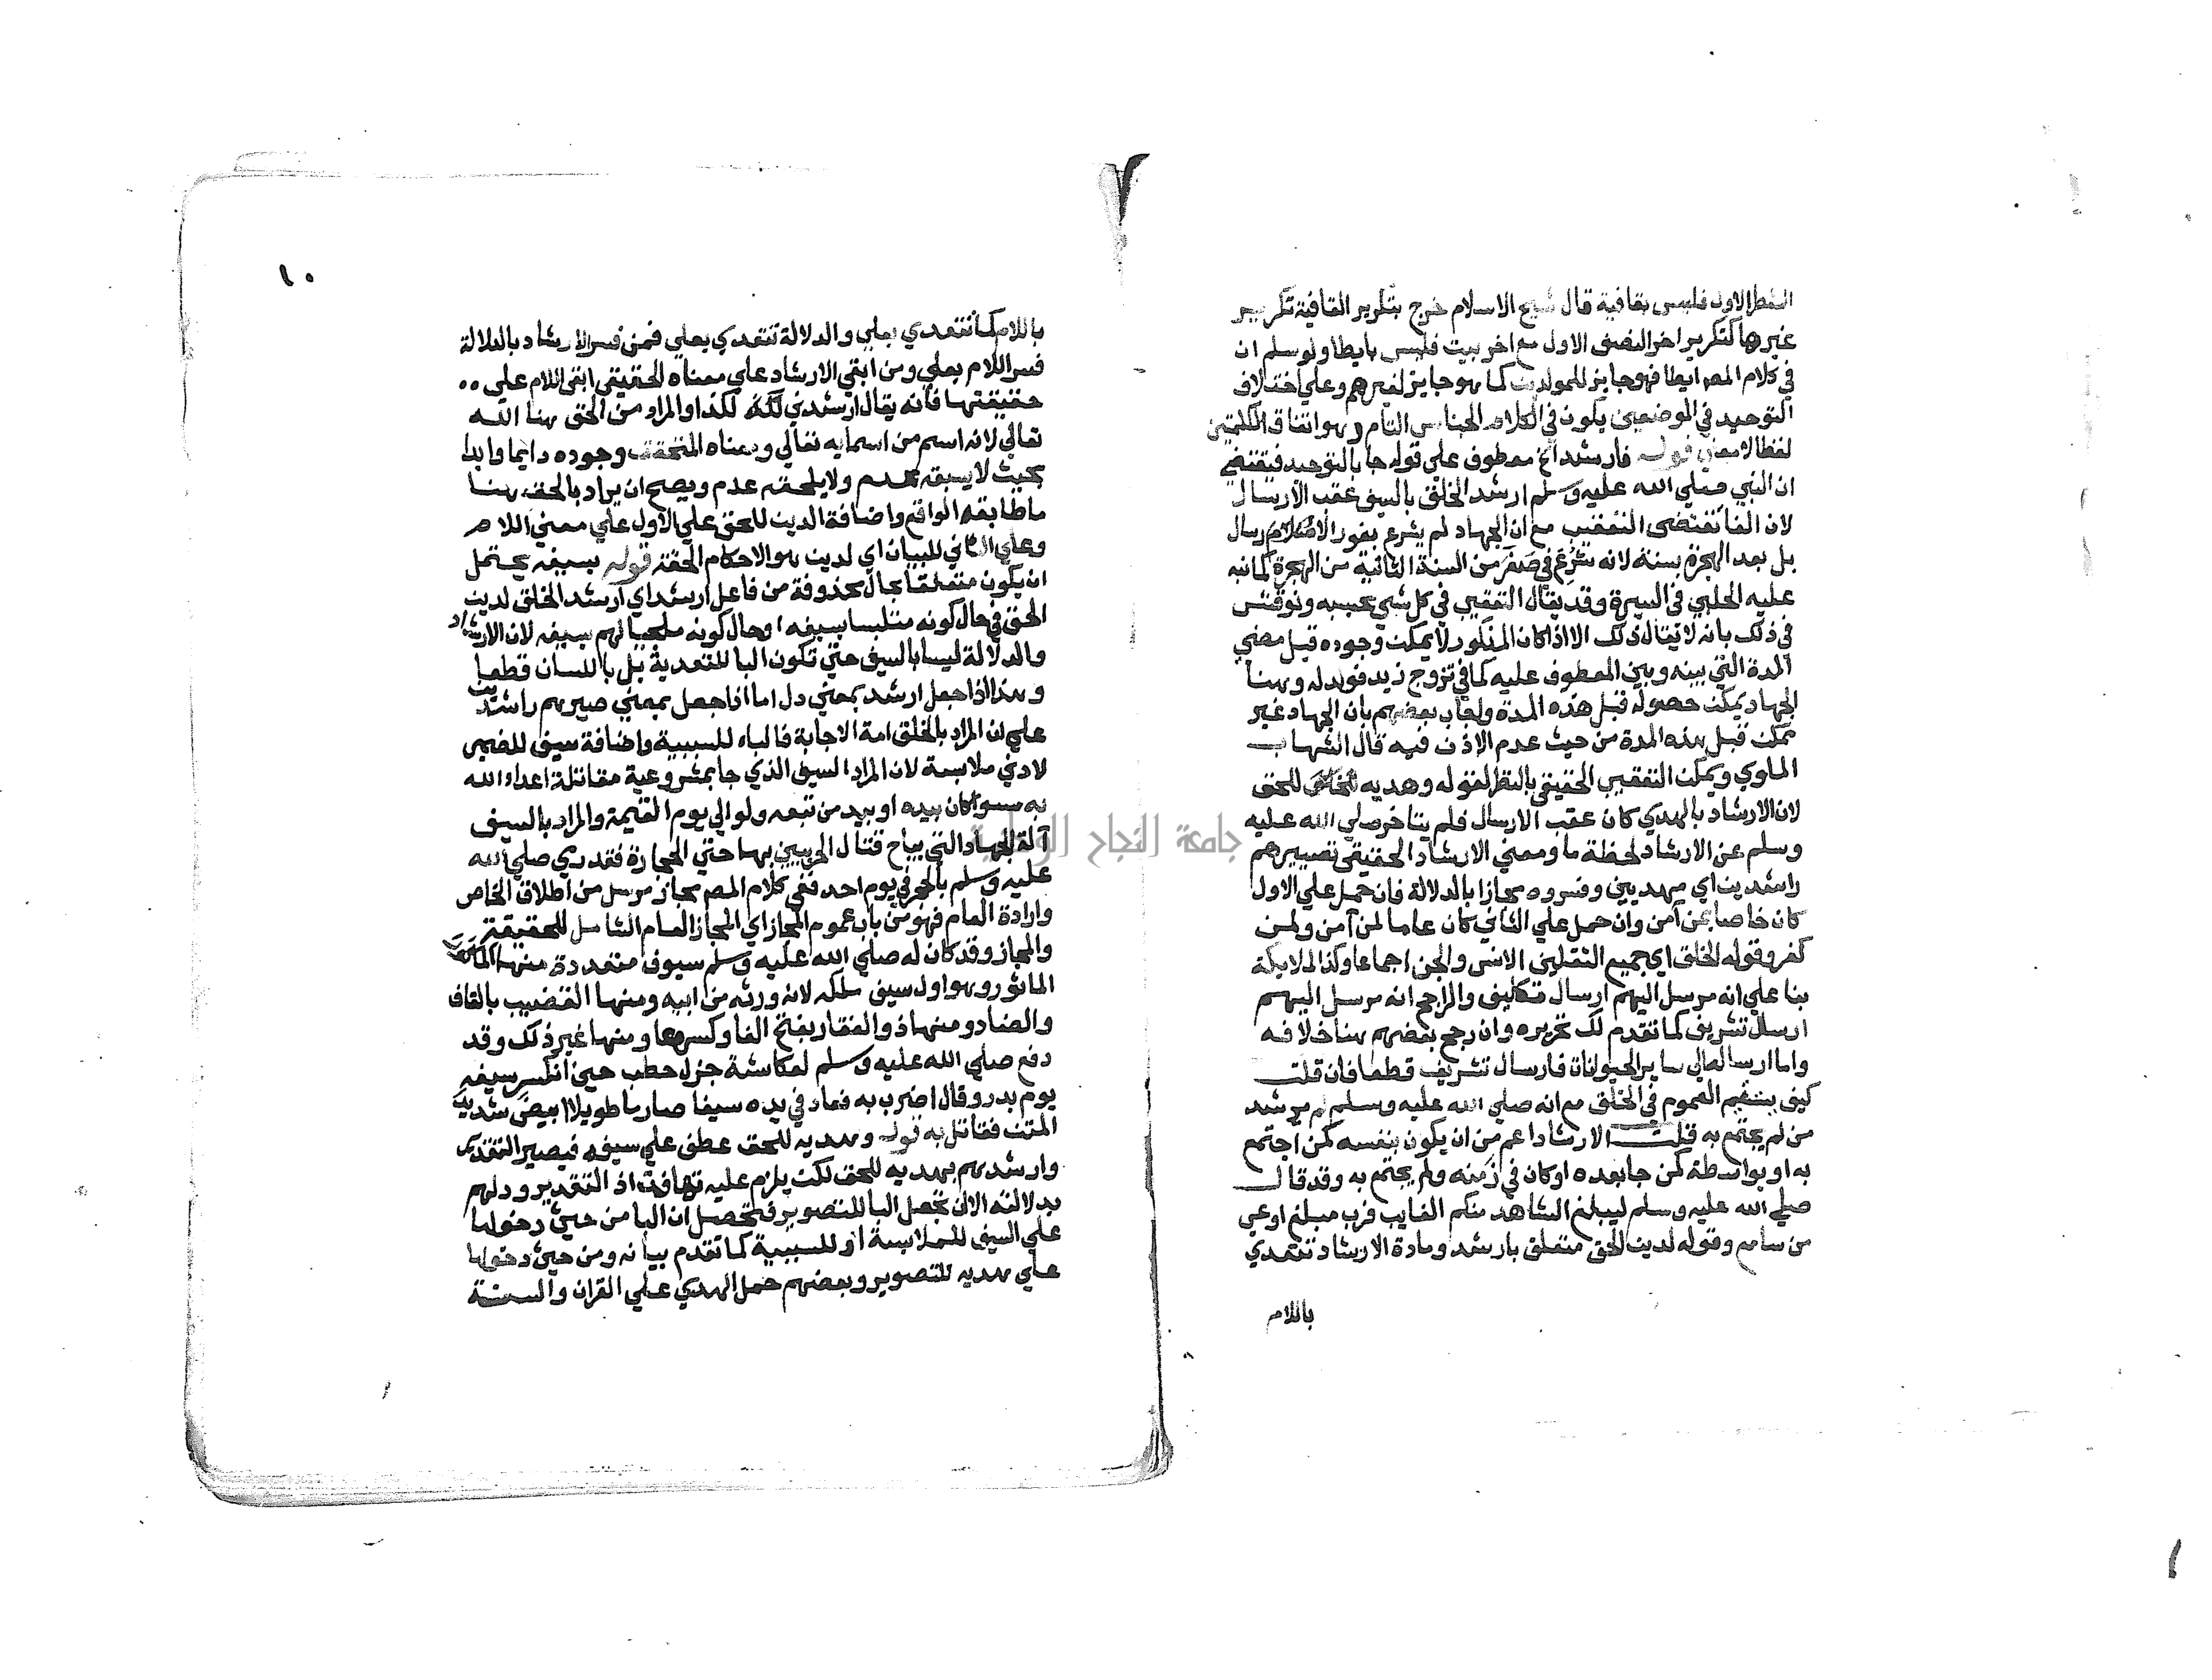 الشطر الاول فليس بقافية قال شيخ الاسلام خرج بتكرير القافية تكرير
غيرها كتكرير اخر النصف الاول مع اخر بيت فليس بايطا ولو سلم ان
في كلام المص ايطا فهو جايز للمولدين كما هو جايز لغيرهم وعلي اختلاف
التوحيد في الموضعين يكون في الكلام الجناس التام وهو اتفاق الكلمتين
لفظا لا معني قوله فارشد الخ معطوف علي قوله جا بالتوحيد فيقتضي
ان النبي صلي الله عليه وسلم ارشد الخلق بالسيف عقب الارسال
لان الفا تقتضي التعقيب مع ان الجهاد لم يشرع بفور الارسال
بل بعد الهجرة بسنة لانه شرع في صفر من السنة الثانية من الهجرة كما نبه
عليه الحلبي في السيرة وقد يقال التعقيب في كل شي بحسبه ونوقش
في ذلك بانه لا يقال ذلك الا اذا كان المذكور لا يمكن وجوده قبل مضي
المدة التي بينه وبين المعطوف عليه كما في تزوج زيد فولد له وهنا
الجهاد يمكن حصوله قبل هذه المدة واجاب بعضهم بان الجهاد غير
ممكن قبل هذه المدة من حيث عدم الاذن فيه قال الشهاب
الملوي ويمكن التعقيب الحقيقي بالنظر لقوله وهديه للحق
لان الارشاد بالهدي كان عقب الارسال فلم يتاخر صلي الله عليه
وسلم عن الارشاد لحظة ما ومعني الارشاد الحقيقي تصييرهم
راشدين اي مهديين وفسروه مجازا بالدلالة فان حمل علي الاول
كان خاصا بمن آمن وان حمل علي الثاني كان عاما لمن آمن ولمن
كفر وقوله الخلق اي جميع الثقلين الانس والجن اجماعا وكذا الملايكة
بنا علي انه مرسل اليهم ارسال تكليف والراجح انه مرسل اليهم
ارسال تشريف كما تقدم لك تحريره وان رجح بعضهم هنا خلافه
واما ارساله الي ساير الحيوانات فارسال تشريف قطعا فان قلت
كيف يستقيم العموم في الخلق مع انه صلي الله عليه وسلم لم يرشد
من لم يجتمع به قلت الارشاد اعم من ان يكون بنفسه كمن اجتمع
به او بواسطة كمن جا بعده او كان في زمنه ولم يجتمع به وقد قال
صلي الله عليه وسلم ليبلغ الشاهد منكم الغايب فرب مبلغ اوعي
من سامع وقوله لدين الحق متعلق بارشد ومادة الارشاد تتعدي
باللام
١٠
باللام كما تتعدي بعلي والدلالة تتعدي بعلي فمن فسر الارشاد بالدلالة
فسر اللام بعلي ومن ابقي الارشاد علي معناه الحقيقي ابقي اللام علي
حقيقتها فانه يقال ارشدني لكذا والمراد من الحق هنا الله
تعالي لانه اسم من اسمايه تعالي ومعناه المتحقق وجوده دايما وابدا
بحيث لا يسبقه عدم ولا يلحقه عدم ويصح ان يراد بالحق هنا
ما طابقه الواقع واضافة الدين للحق علي الاول علي معني اللام
وعلي الثاني للبيان اي لدين هو الاحكام الحقة قوله بسيفه يحتمل
ان يكون متعلقا بحال محذوفة من فاعل ارشد اي ارشد الخلق لدين
الحق في حال كونه متلبسا بسيفه او حال كونه ملجيا لهم بسيفه لان الارشاد
والدلالة ليسا بالسيف حتي تكون البا للتعدية بل باللسان قطعا
وهذا اذا جعل ارشد بمعني دل اما اذا جعل بمعني صيرهم راشدين
علي ان المراد بالخلق امة الاجابة فالباء للسببية واضافة سيف للضمير
لادني ملابسة لان المراد السيف الذي جا بمشروعية مقاتلة اعداء الله
به سوا كان بيده او بيد من تبعه ولو الي يوم القيمة والمراد بالسيف
آلة الجهاد التي يباح قتال الحربيين بها حتي الحجارة فقد رمي صلي الله
عليه وسلم بالحجر في يوم احد ففي كلام المص مجاز مرسل من اطلاق الخاص
وارادة العام فهو من باب عموم المجاز اي المجاز العام الشامل للحقيقة
والمجاز وقد كان له صلي الله عليه وسلم سيوف متعددة منها
الماثور وهو اول سيف ملكه لانه ورثه من ابيه ومنها القضيب بالقاف
والضاد ومنها ذو الفقار بفتح الفا وكسرها ومنها غير ذلك وقد
دفع صلي الله عليه وسلم لعكاشة جزل حطب حين انكسر سيفه
يوم بدر وقال اضرب به فعاد في يده سيفا صارما طويلا ابيض شديد
المتن فقاتل به قوله وهديه للحق عطف علي سيفه فيصير التقدير
وارشدهم بهديه للحق لكن يلزم عليه تهافت اذ التقدير ودلهم
بدلالته الا ان تجعل البا للتصوير فتحصل ان البا من حيث دخولها
علي السيف للملابسة او للسببية كما تقدم بيانه ومن حيث دخولها
علي هديه للتصوير وبعضهم حمل الهدي علي القران والسنة
جامعة النجاح الوطنية